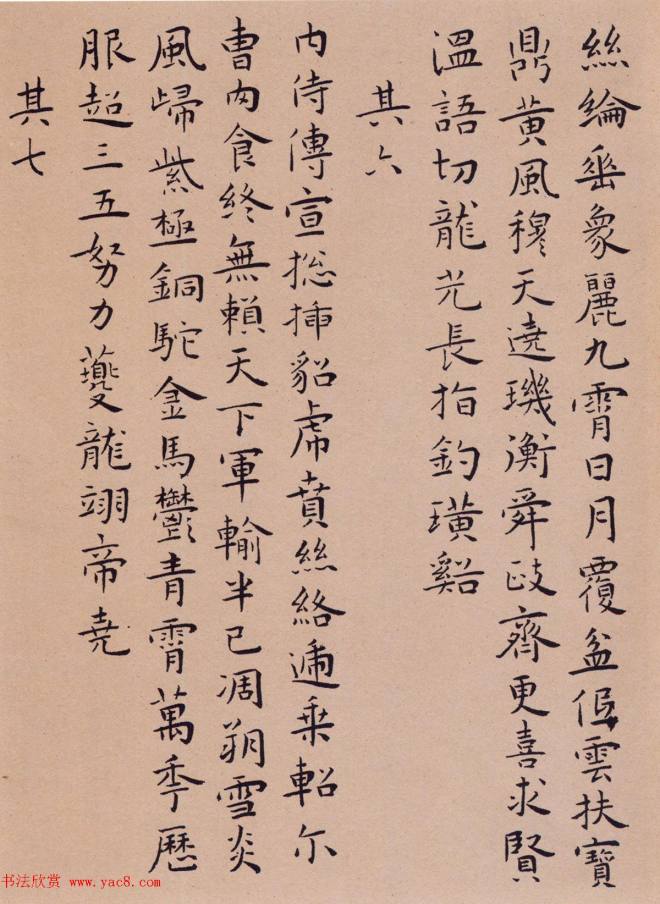 絲綸垂象麗九霄日月覆盆低雲扶寶
鼎黃風穆天遶璣衡舜政齊更喜求賢
溫語切龍光長指釣璜谿
其六
內侍傳宣捴插貂虎賁絲絡遞乗軺尔
曹肉食終無賴天下軍輸半已凋朔雪炎
風歸紫極銅駝金馬鬱青霄萬秊歷
服超三五努力夔龍翊帝堯
其七
书法欣赏 www.yac8.com